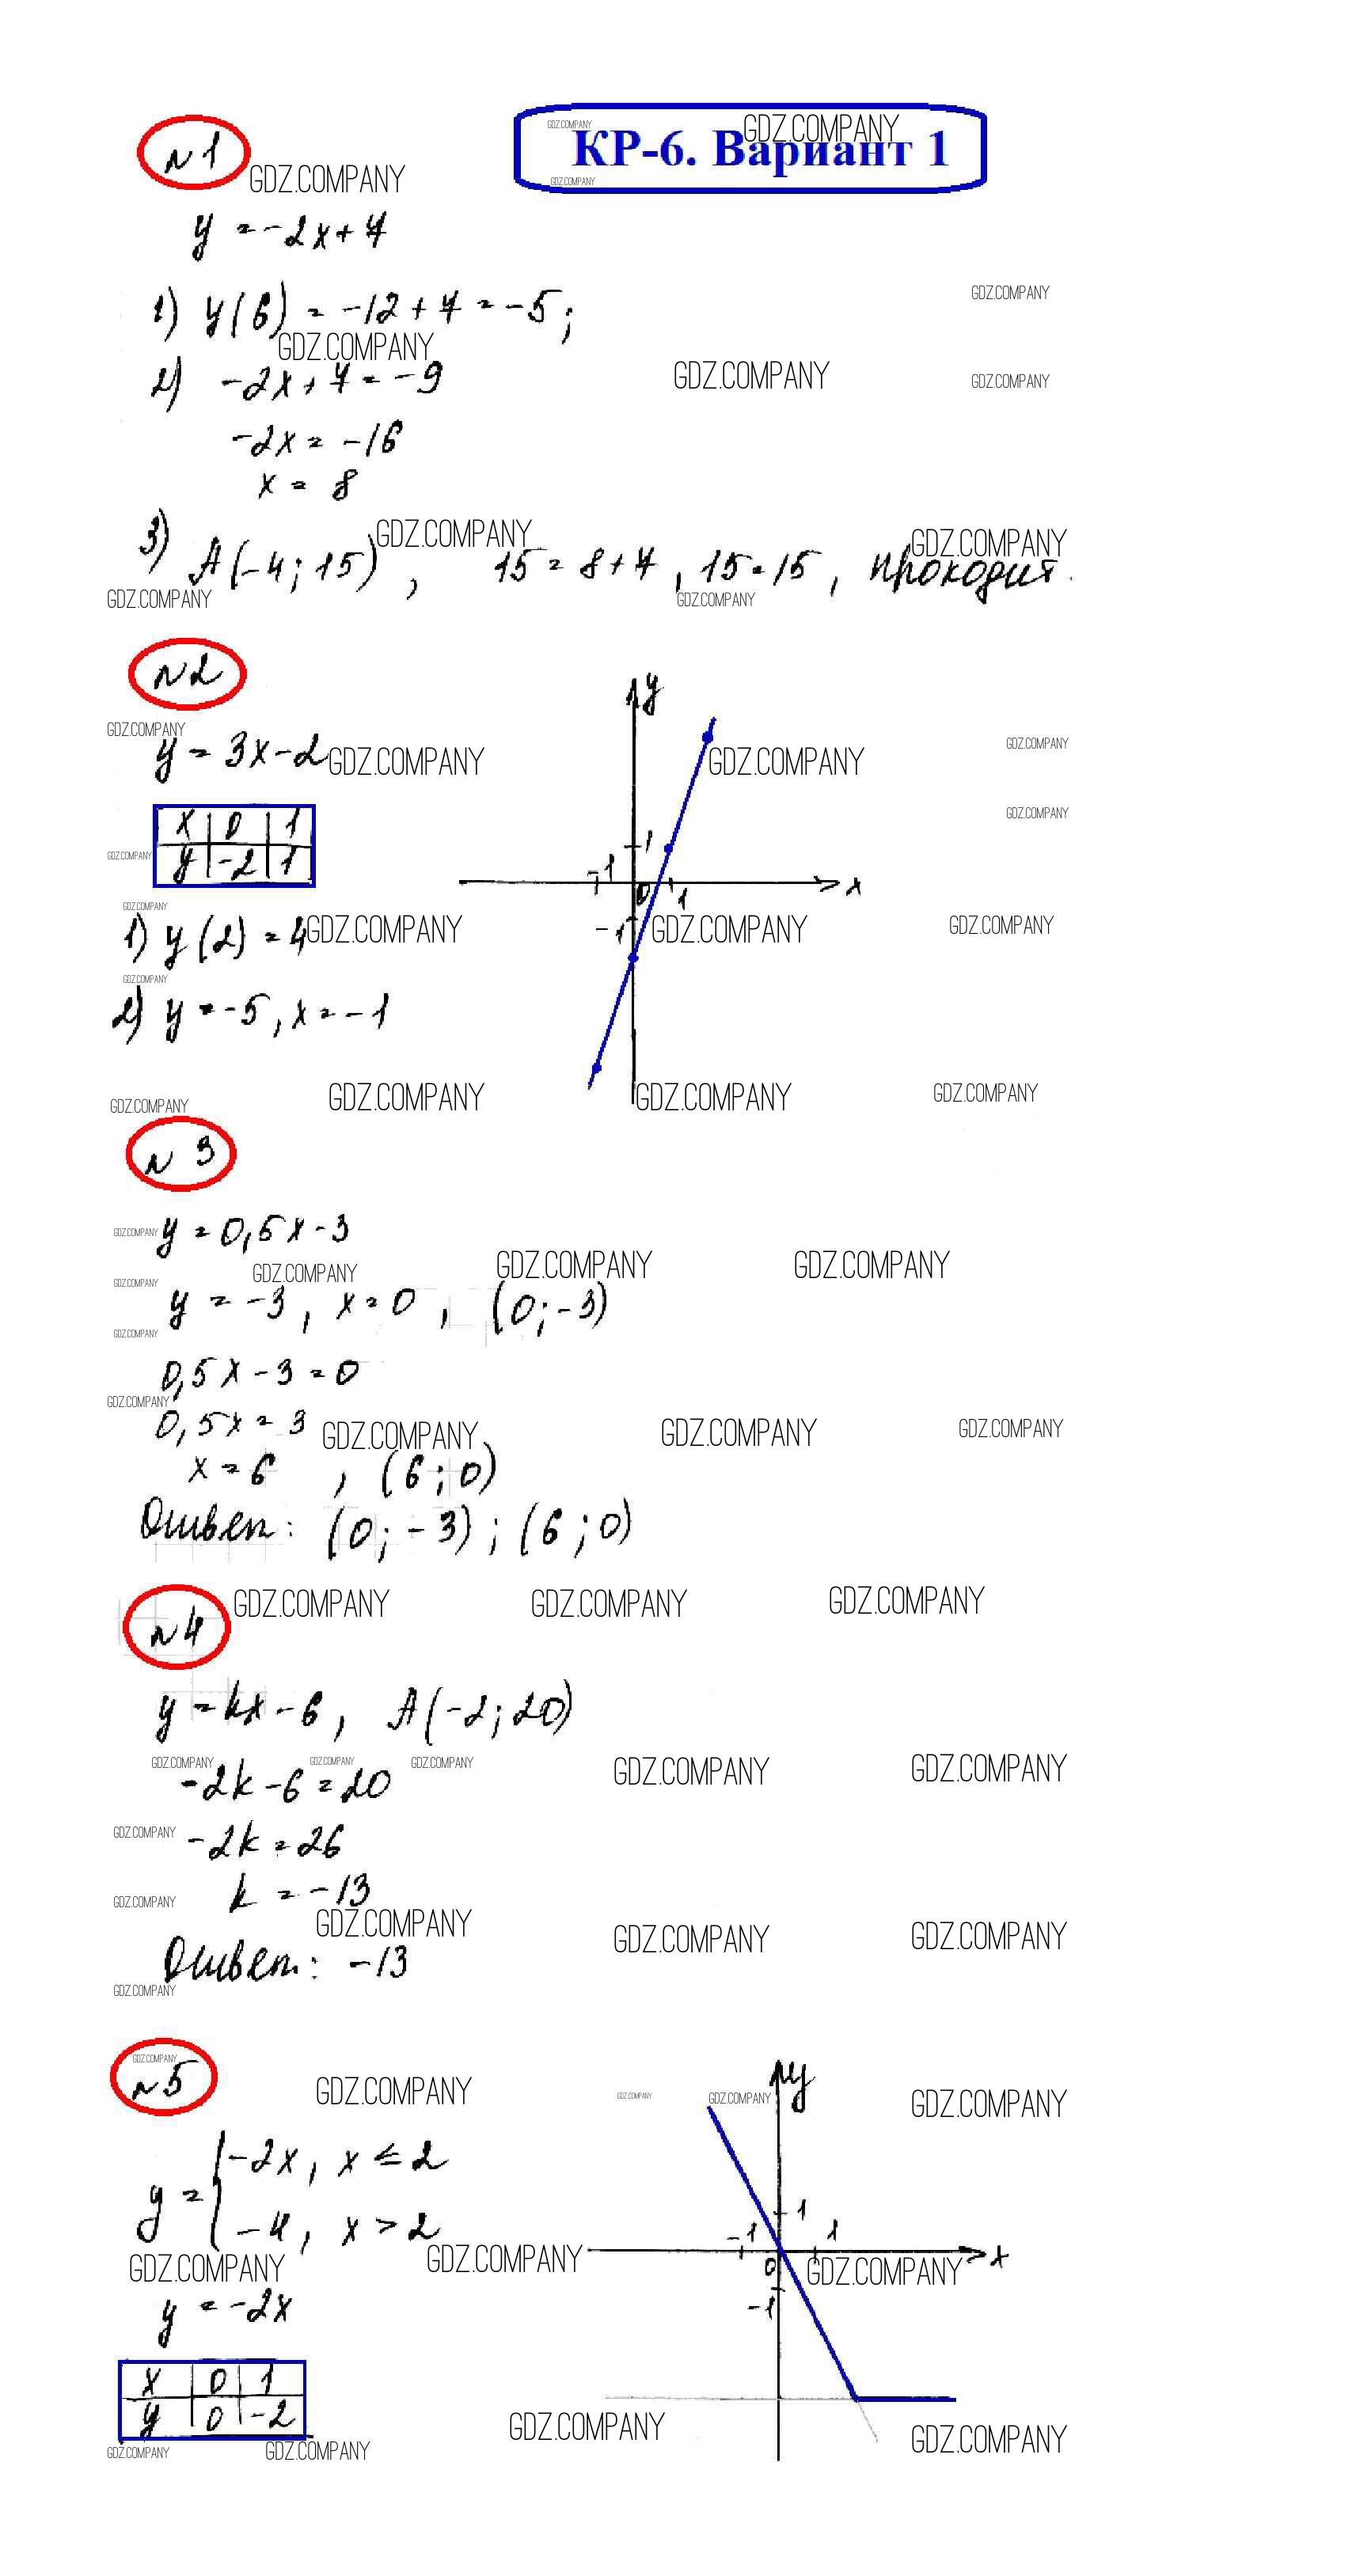 КР-6. Вариант 1
№1
GDZ.COMPANY
y = -2x + 7
1) y(6) = -12 + 7 = -5;
2) -2x + 7 = -9
-2x = -16
x = 8
3) A(-4; 15), 15 = 8 + 7, 15 = 15, проходит.
№2
y = 3x - 2
x 0 1
y -2 1
1) y(2) = 4
2) y = -5, x = -1
y
1
-1 0 1 x
-1
№ 3
y = 0,5x - 3
y = -3, x = 0, (0; -3)
0,5x - 3 = 0
0,5x = 3
x = 6, (6; 0)
Ответ: (0; -3); (6; 0)
№4
y = kx - 6, A(-2; 20)
-2k - 6 = 20
-2k = 26
k = -13
Ответ: -13
№5
y = { -2x, x ≤ 2
-4, x > 2
y = -2x
x 0 1
y 0 -2
y
1
-1 0 1 x
-1